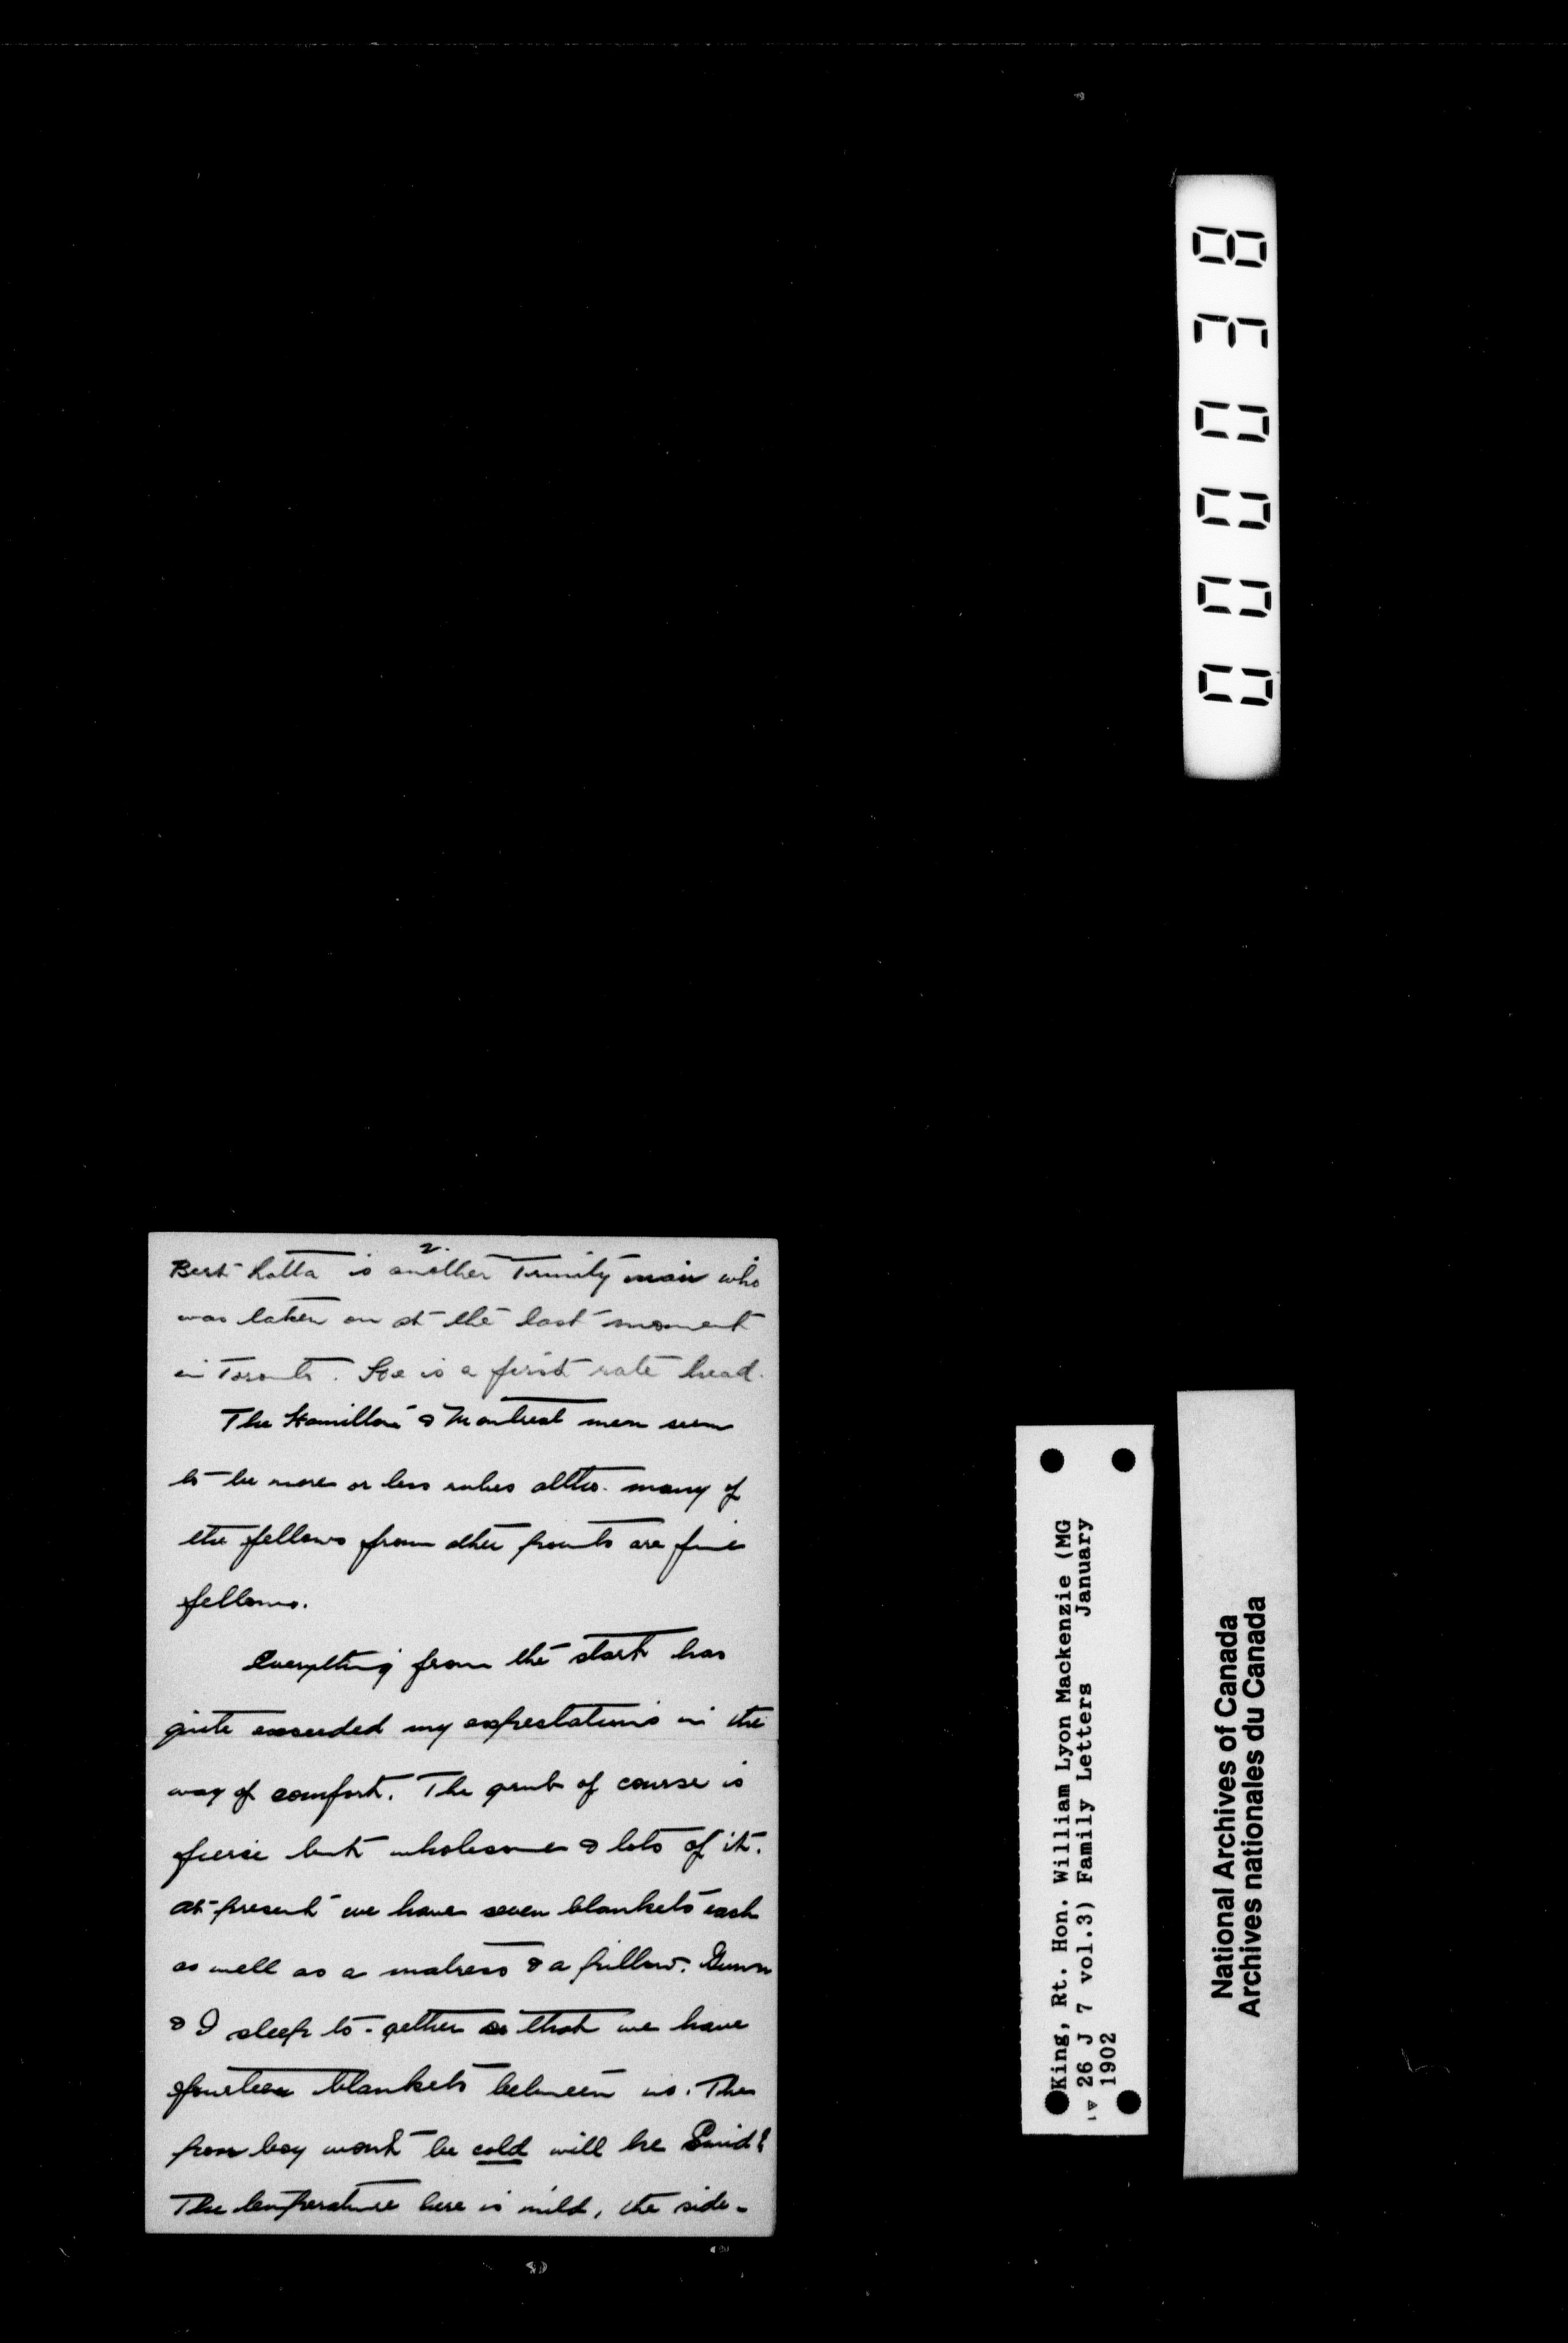 2.
Bert Latta is another Trinity man who
was taken on at the last moment
in Toronto. He is a first rate head.
The Hamilton & Montreal men seem
to be more or less rubes altho. many of
the fellows from other points are fine
fellows.
Everything from the start has
quite exceeded my expectations in the
way of comfort. The grub of course is
fierce but wholesome & lots of it.
At present we have seven blankets each
as well as a matress & a pillow. Gunn
& I sleep to-gether so that we have
fourteen blankets between us. The
poor boy won't be cold will he
The temperature here is mild, the side-
000038
King, Rt. Hon. William Lyon Mackenzie (MG
26 J 7 vol.3) Family Letters January
1902
National Archives of Canada
Archives nationales du Canada